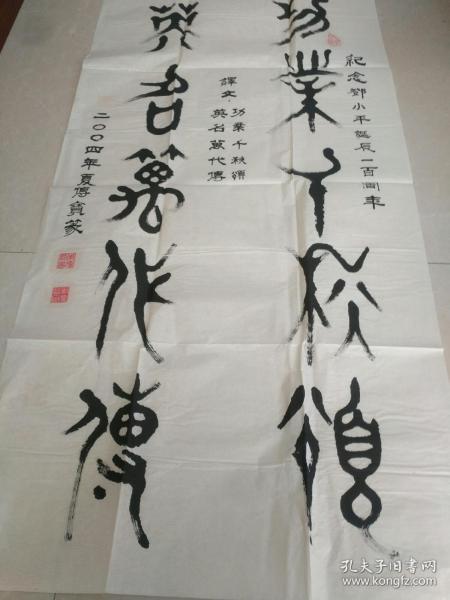 功業千秋頌
紀念鄧小平誕辰一百周年
譯文：功業千秋頌
英名萬代傳
英名萬代傳
二〇〇四年夏傳寶篆
孔夫子旧书网
www.kongfz.com